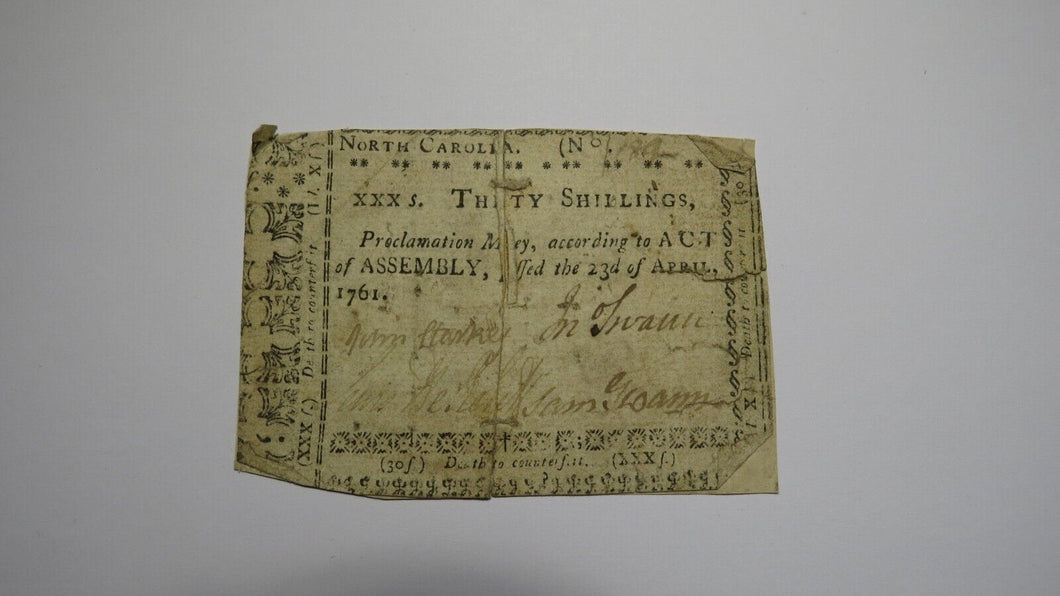 NORTH CAROLINA. (No.
XXX s. THIRTY SHILLINGS,
Proclamation Money, according to ACT
of ASSEMBLY, passed the 23d of APRIL,
1761.
Jn Swann
Sam Swann
(30ſ.) Death to counterfeit. (XXXſ.)
(XXXſ.) Death to counterfeit
Death to counterfeit (30ſ